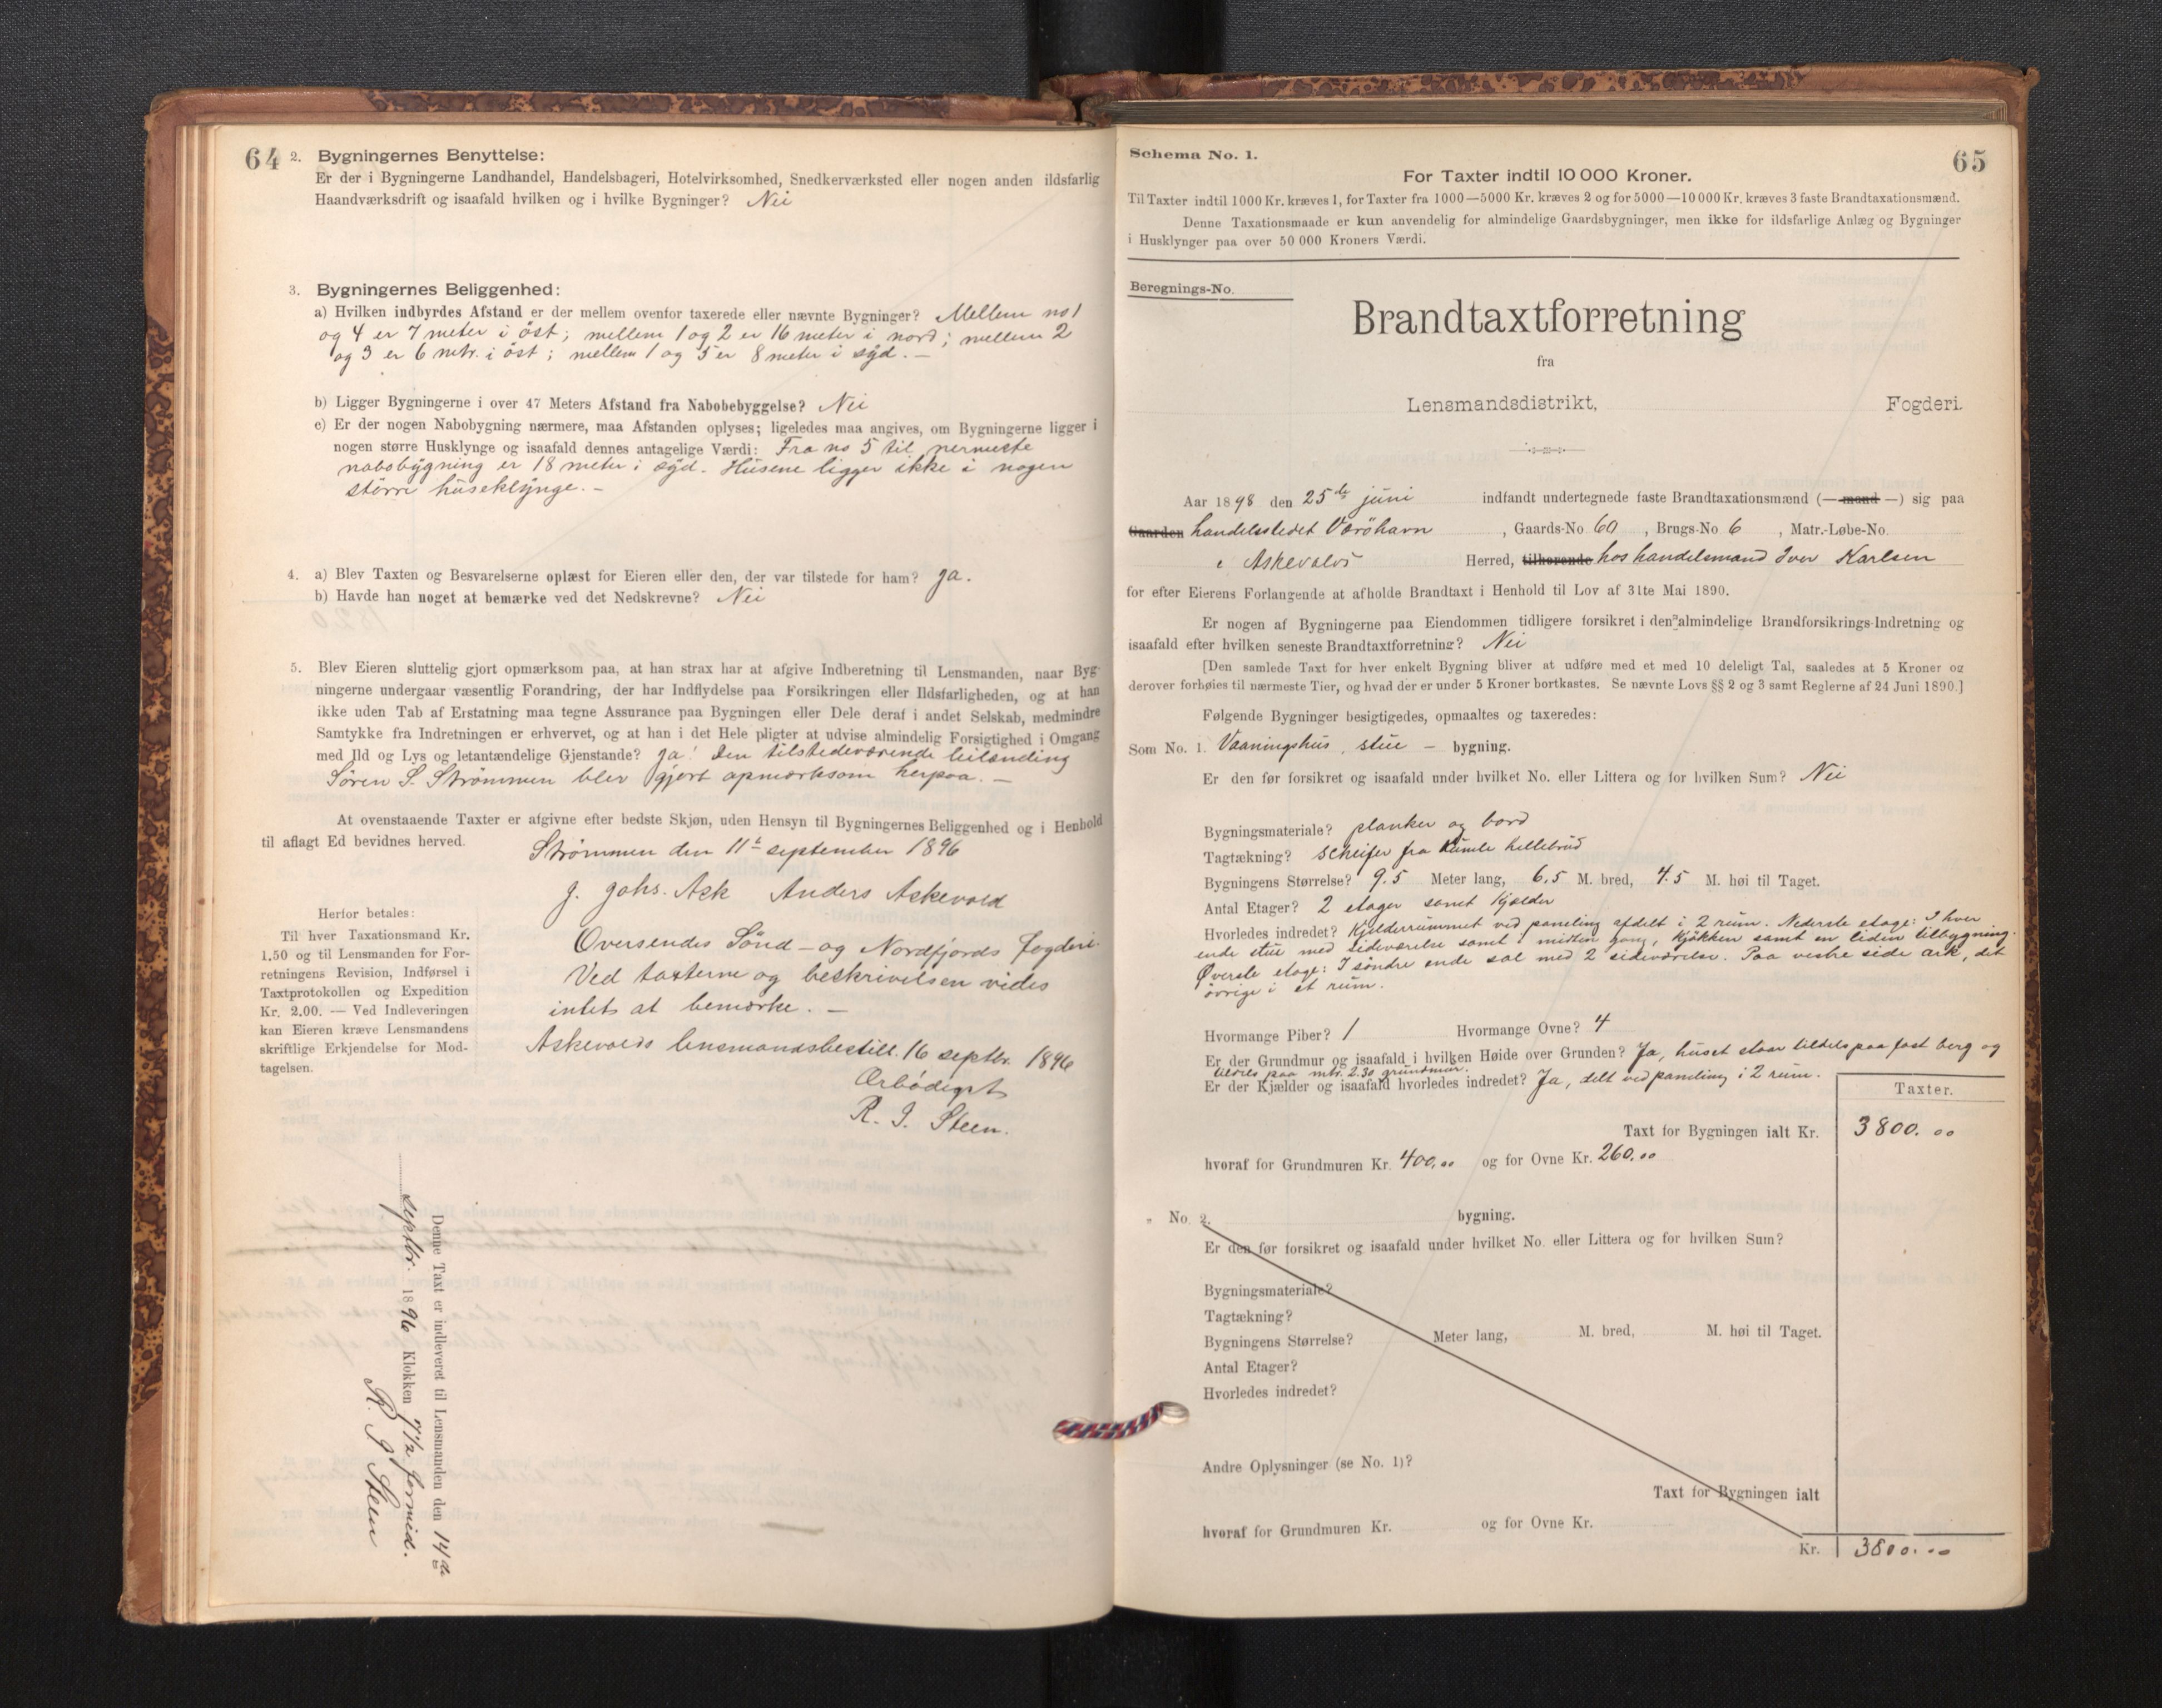 64
2. Bygningernes Benyttelse:
Er der i Bygningerne Landhandel, Handelsbageri, Hotelvirksomhed, Snedkerværksted eller nogen anden ildsfarlig
Haandværksdrift og isaafald hvilken og i hvilke Bygninger? Nei
3. Bygningernes Beliggenhed:
a) Hvilken indbyrdes Afstand er der mellem ovenfor taxerede eller nævnte Bygninger? Mellem no 1
og 4 er 7 meter i öst; mellem 1 og 2 er 16 meter i nord; mellem 2
og 3 er 6 mtr. i öst; mellem 1 og 5 er 8 meter i syd. —
b) Ligger Bygningerne i over 47 Meters Afstand fra Nabobebyggelse? Nei
c) Er der nogen Nabobygning nærmere, maa Afstanden oplyses; ligeledes maa angives, om Bygningerne ligger i
nogen større Husklynge og isaafald dennes antagelige Værdi: Fra no 5 til nermeste
nabobygning er 18 meter i syd. Husene ligger ikke i nogen
större huseklynge. —
4. a) Blev Taxten og Besvarelserne oplæst for Eieren eller den, der var tilstede for ham? ja.
b) Havde han noget at bemærke ved det Nedskrevne? Nei
5. Blev Eieren sluttelig gjort opmærksom paa, at han strax har at afgive Indberetning til Lensmanden, naar Byg-
ningerne undergaar væsentlig Forandring, der har Indflydelse paa Forsikringen eller Ildsfarligheden, og at han
ikke uden Tab af Erstatning maa tegne Assurance paa Bygningen eller Dele deraf i andet Selskab, medmindre
Samtykke fra Indretningen er erhvervet, og at han i det Hele pligter at udvise almindelig Forsigtighed i Omgang
med Ild og Lys og letantændelige Gjenstande? ja! Den tilstedeværende leilænding
Sören S. Strömmen blev gjort opmærksom herpaa. —
At ovenstaaende Taxter er afgivne efter bedste Skjøn, uden Hensyn til Bygningernes Beliggenhed og i Henhold
til aflagt Ed bevidnes herved.
Strömmen den 11te september 1896
J. Johs. Ask Anders Askevold
Herfor betales:
Til hver Taxationsmand Kr.
1.50 og til Lensmanden for For-
retningens Revision, Indførsel i
Taxtprotokollen og Expedition
Kr. 2.00. — Ved Indleveringen
kan Eieren kræve Lensmandens
skriftlige Erkjendelse for Mod-
tagelsen.
Oversendes Sönd- og Nordfjords fogderi.
Ved taxterne og beskrivelsen vides
intet at bemærke. —
Askevolds lensmandsbestill. 16 septbr. 1896
Ærbödigst
R. J. Steen.
Denne Taxt er indleveret til Lensmanden den 14de
septbr. 1896 Klokken 7 1/2 formid.
R. J. Steen
65
Schema No. 1.
For Taxter indtil 10 000 Kroner.
Til Taxter indtil 1000 Kr. kræves 1, for Taxter fra 1000—5000 Kr. kræves 2 og for 5000—10 000 Kr. kræves 3 faste Brandtaxationsmænd.
Denne Taxationsmaade er kun anvendelig for almindelige Gaardsbygninger, men ikke for ildsfarlige Anlæg og Bygninger
i Husklynger paa over 50 000 Kroners Værdi.
Beregnings-No.
Brandtaxtforretning
fra
Lensmandsdistrikt, Fogderi.
Aar 1898 den 25de juni indfandt undertegnede faste Brandtaxationsmænd (— mand —) sig paa
Gaarden handelsstedet Væröhavn, Gaards-No. 60, Brugs-No 6, Matr.-Løbe-No.
i Askevolds Herred, tilhørende hos handelsmand Iver Karlsen
for efter Eierens Forlangende at afholde Brandtaxt i Henhold til Lov af 31te Mai 1890.
Er nogen af Bygningerne paa Eiendommen tidligere forsikret i den almindelige Brandforsikrings-Indretning og
isaafald efter hvilken seneste Brandtaxtforretning? Nei
[Den samlede Taxt for hver enkelt Bygning bliver at udføre med et med 10 deleligt Tal, saaledes at 5 Kroner og
derover forhøies til nærmeste Tier, og hvad der er under 5 Kroner bortkastes. Se nævnte Lovs §§ 2 og 3 samt Reglerne af 24 Juni 1890.]
Følgende Bygninger besigtigedes, opmaaltes og taxeredes:
Som No. 1. Vaaningshus, stue — bygning.
Er den før forsikret og isaafald under hvilket No. eller Littera og for hvilken Sum? Nei
Bygningsmateriale? planker og bord
Tagtækning? scheifer fra hellebrud
Bygningens Størrelse? 9.5 Meter lang, 6.5 M. bred, 4.5 M. høi til Taget.
Antal Etager? 2 etager samt kjelder
Hvorledes indredet? Kjelderrummet ved paneling afdelt i 2 rum. Nederste etage: I hver
ende stue med sideværelse samt i midten gang, kjökken samt en liden tilbygning.
Øverste etage: I söndre ende sal med 2 sideværelse. Paa vestre side ark, det
övrige i et rum.
Hvormange Piber? 1 Hvormange Ovne? 4
Er der Grundmur og isaafald i hvilken Høide over Grunden? Ja, huset staar tildels paa fast berg og
tildels paa mtr. 2.30 grundmur.
Er der Kjælder og isaafald hvorledes indredet? Ja, delt ved paneling i 2 rum.
Taxter.
Taxt for Bygningen ialt Kr. 3800.00
hvoraf for Grundmuren Kr. 400.00 og for Ovne Kr. 260.00
„ No. 2. bygning.
Er den før forsikret og isaafald under hvilket No. eller Littera og for hvilken Sum?
Bygningsmateriale?
Tagtækning?
Bygningens Størrelse? Meter lang, M. bred, M. høi til Taget.
Antal Etager?
Hvorledes indredet?
Andre Oplysninger (se No. 1)?
Taxt for Bygningen ialt
hvoraf for Grundmuren Kr. og for Ovne Kr.
Kr. 3800.00